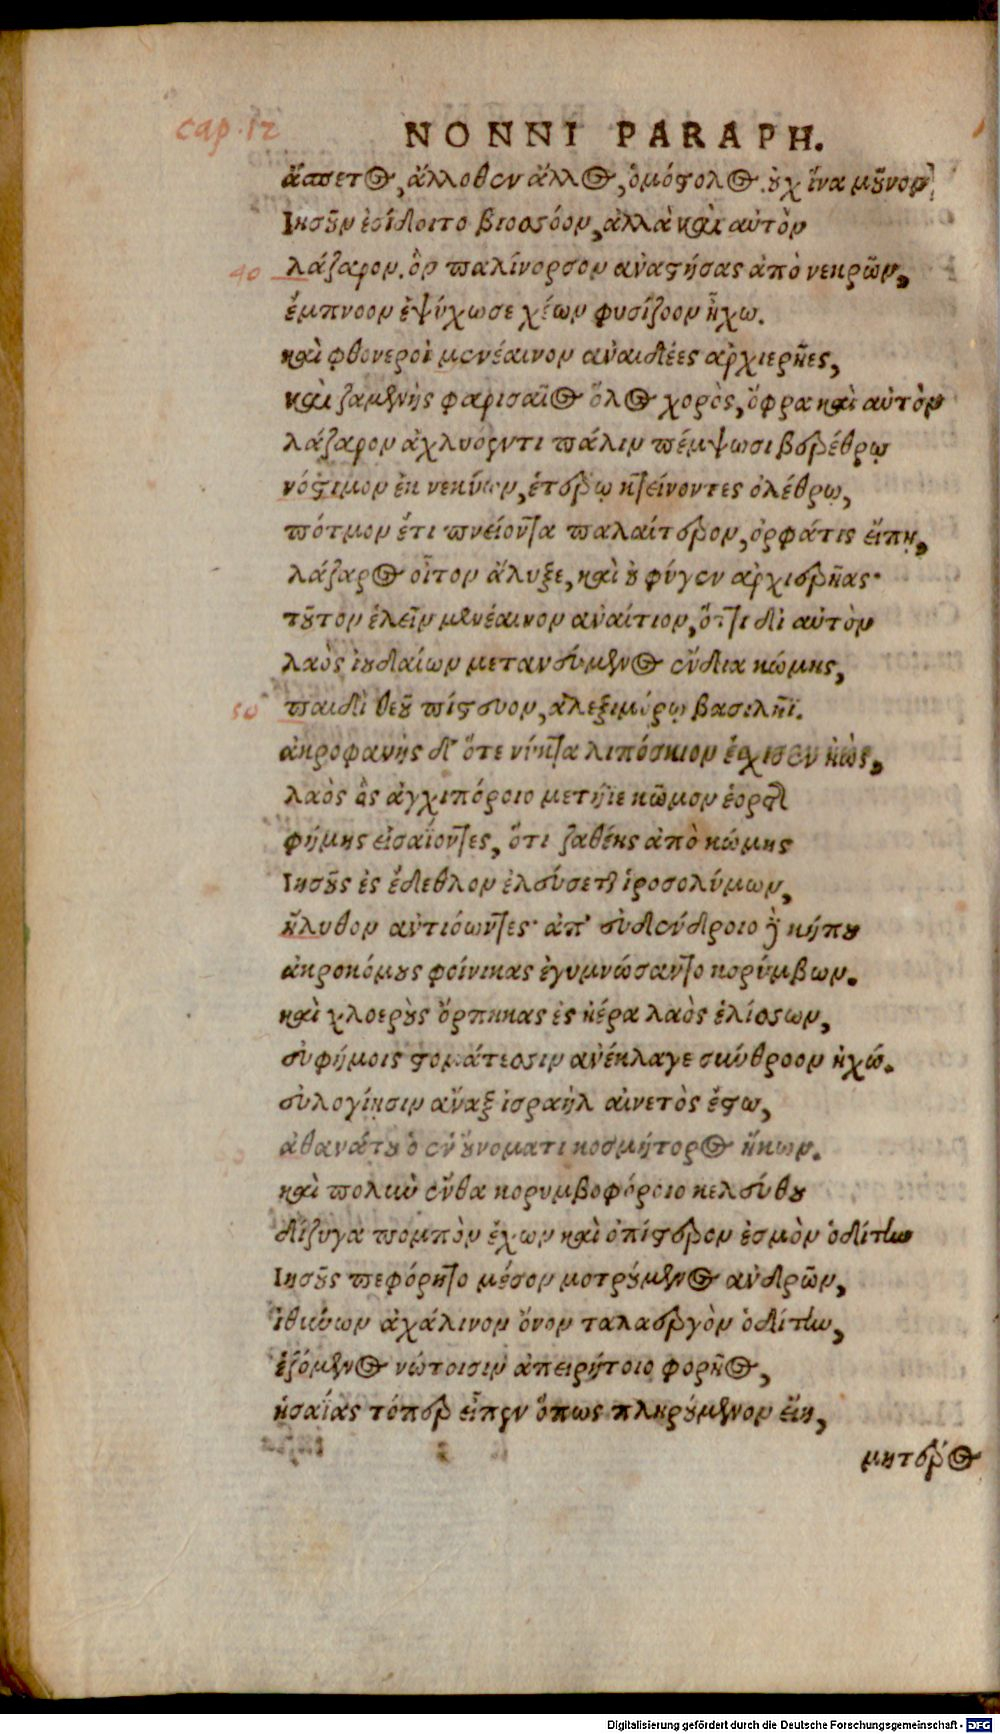 cap. 12
NONNI PARAPH.
ἄσπετος, ἄλλοθεν ἄλλος, ὁμόστολος. οὐχ ἵνα μοῦνον
Ιησοῦν ἐσίδοιτο βιοσσόον, ἀλλὰ καὶ αὐτὸν
40 λάζαρον. ὃν παλίνορσον ἀναστήσας ἀπὸ νεκρῶν,
ἔμπνοον ἐψύχωσε χέων φυσίζοον ἠχώ.
καὶ φθονεροὶ μενέαινον ἀναιδέες ἀρχιερῆες,
καὶ ζαμενὴς φαρισαῖος ὅλος χορὸς, ὄφρα καὶ αὐτὸν
λάζαρον ἀχλυόεντι πάλιν πέμψωσι βερέθρῳ
νόστιμον ἐκ νεκύων, ἑτέρῳ κτείνοντες ὀλέθρῳ,
πότμον ἔτι πνείοντα παλαίτερον, ὄρφάτις εἴπῃ,
λάζαρος οἶτον ἄλυξε, καὶ οὐ φύγεν ἀρχιερῆας·
τοῦτον ἑλεῖν μενέαινον ἀναίτιον, ὅττι δι αὐτὸν
λαὸς ἰουδαίων μετανεύμενος ἔνδια κώμης,
50 παιδὶ θεοῦ πίστευον, ἀλεξιμόρῳ βασιλῆϊ.
ἀκροφανὴς δ' ὅτε νύκτα λιπόσκιον ἔσχισεν ἠὼς,
λαὸς ὃς ἀγχιπόροιο μετήϊε κῶμον ἑορτῆς
φήμης εἰσαΐοντες, ὅτι ζαθέης ἀπὸ κώμης
Ιησοῦς ἐς ἔδεθλον ἐλεύσεται ἱροσολύμων,
ἤλυθον ἀντιόωντες· ἀπ' εὐδένδροιο δὲ κήπου
ἀκροκόμους φοίνικας ἐγυμνώσαντο κορύμβων.
καὶ χλοεροὺς ὅρπηκας ἐς ἠέρα λαὸς ἑλίσσων,
εὐφήμοις στομάτεσσιν ἀνέκλαγε σύνθροον ἠχώ.
εὐλογίησιν ἄναξ ἰσραὴλ αἰνετὸς ἔστω,
ἀθανάτου ὁ ἐν οὔνοματι κοσμήτορος ἥκων.
καὶ πολιὼ ἔνθα κορυμβοφόροιο κελεύθου
δίζυγα πομπὸν ἔχων καὶ ὀπίστερον ἑσμὸν ὁδίτων
Ιησοῦς πεφόρητο μέσον μοτρούμενος ἀνδρῶν,
ἰθύνων ἀχάλινον ὄνον ταλαεργὸν ὁδίτων,
ἑζόμενος νώτοισιν ἀπειρήτοιο φορῆος,
ἠσαΐας τόπερ εἶπεν ὅπως πληρούμενον εἴη,
μητέρος